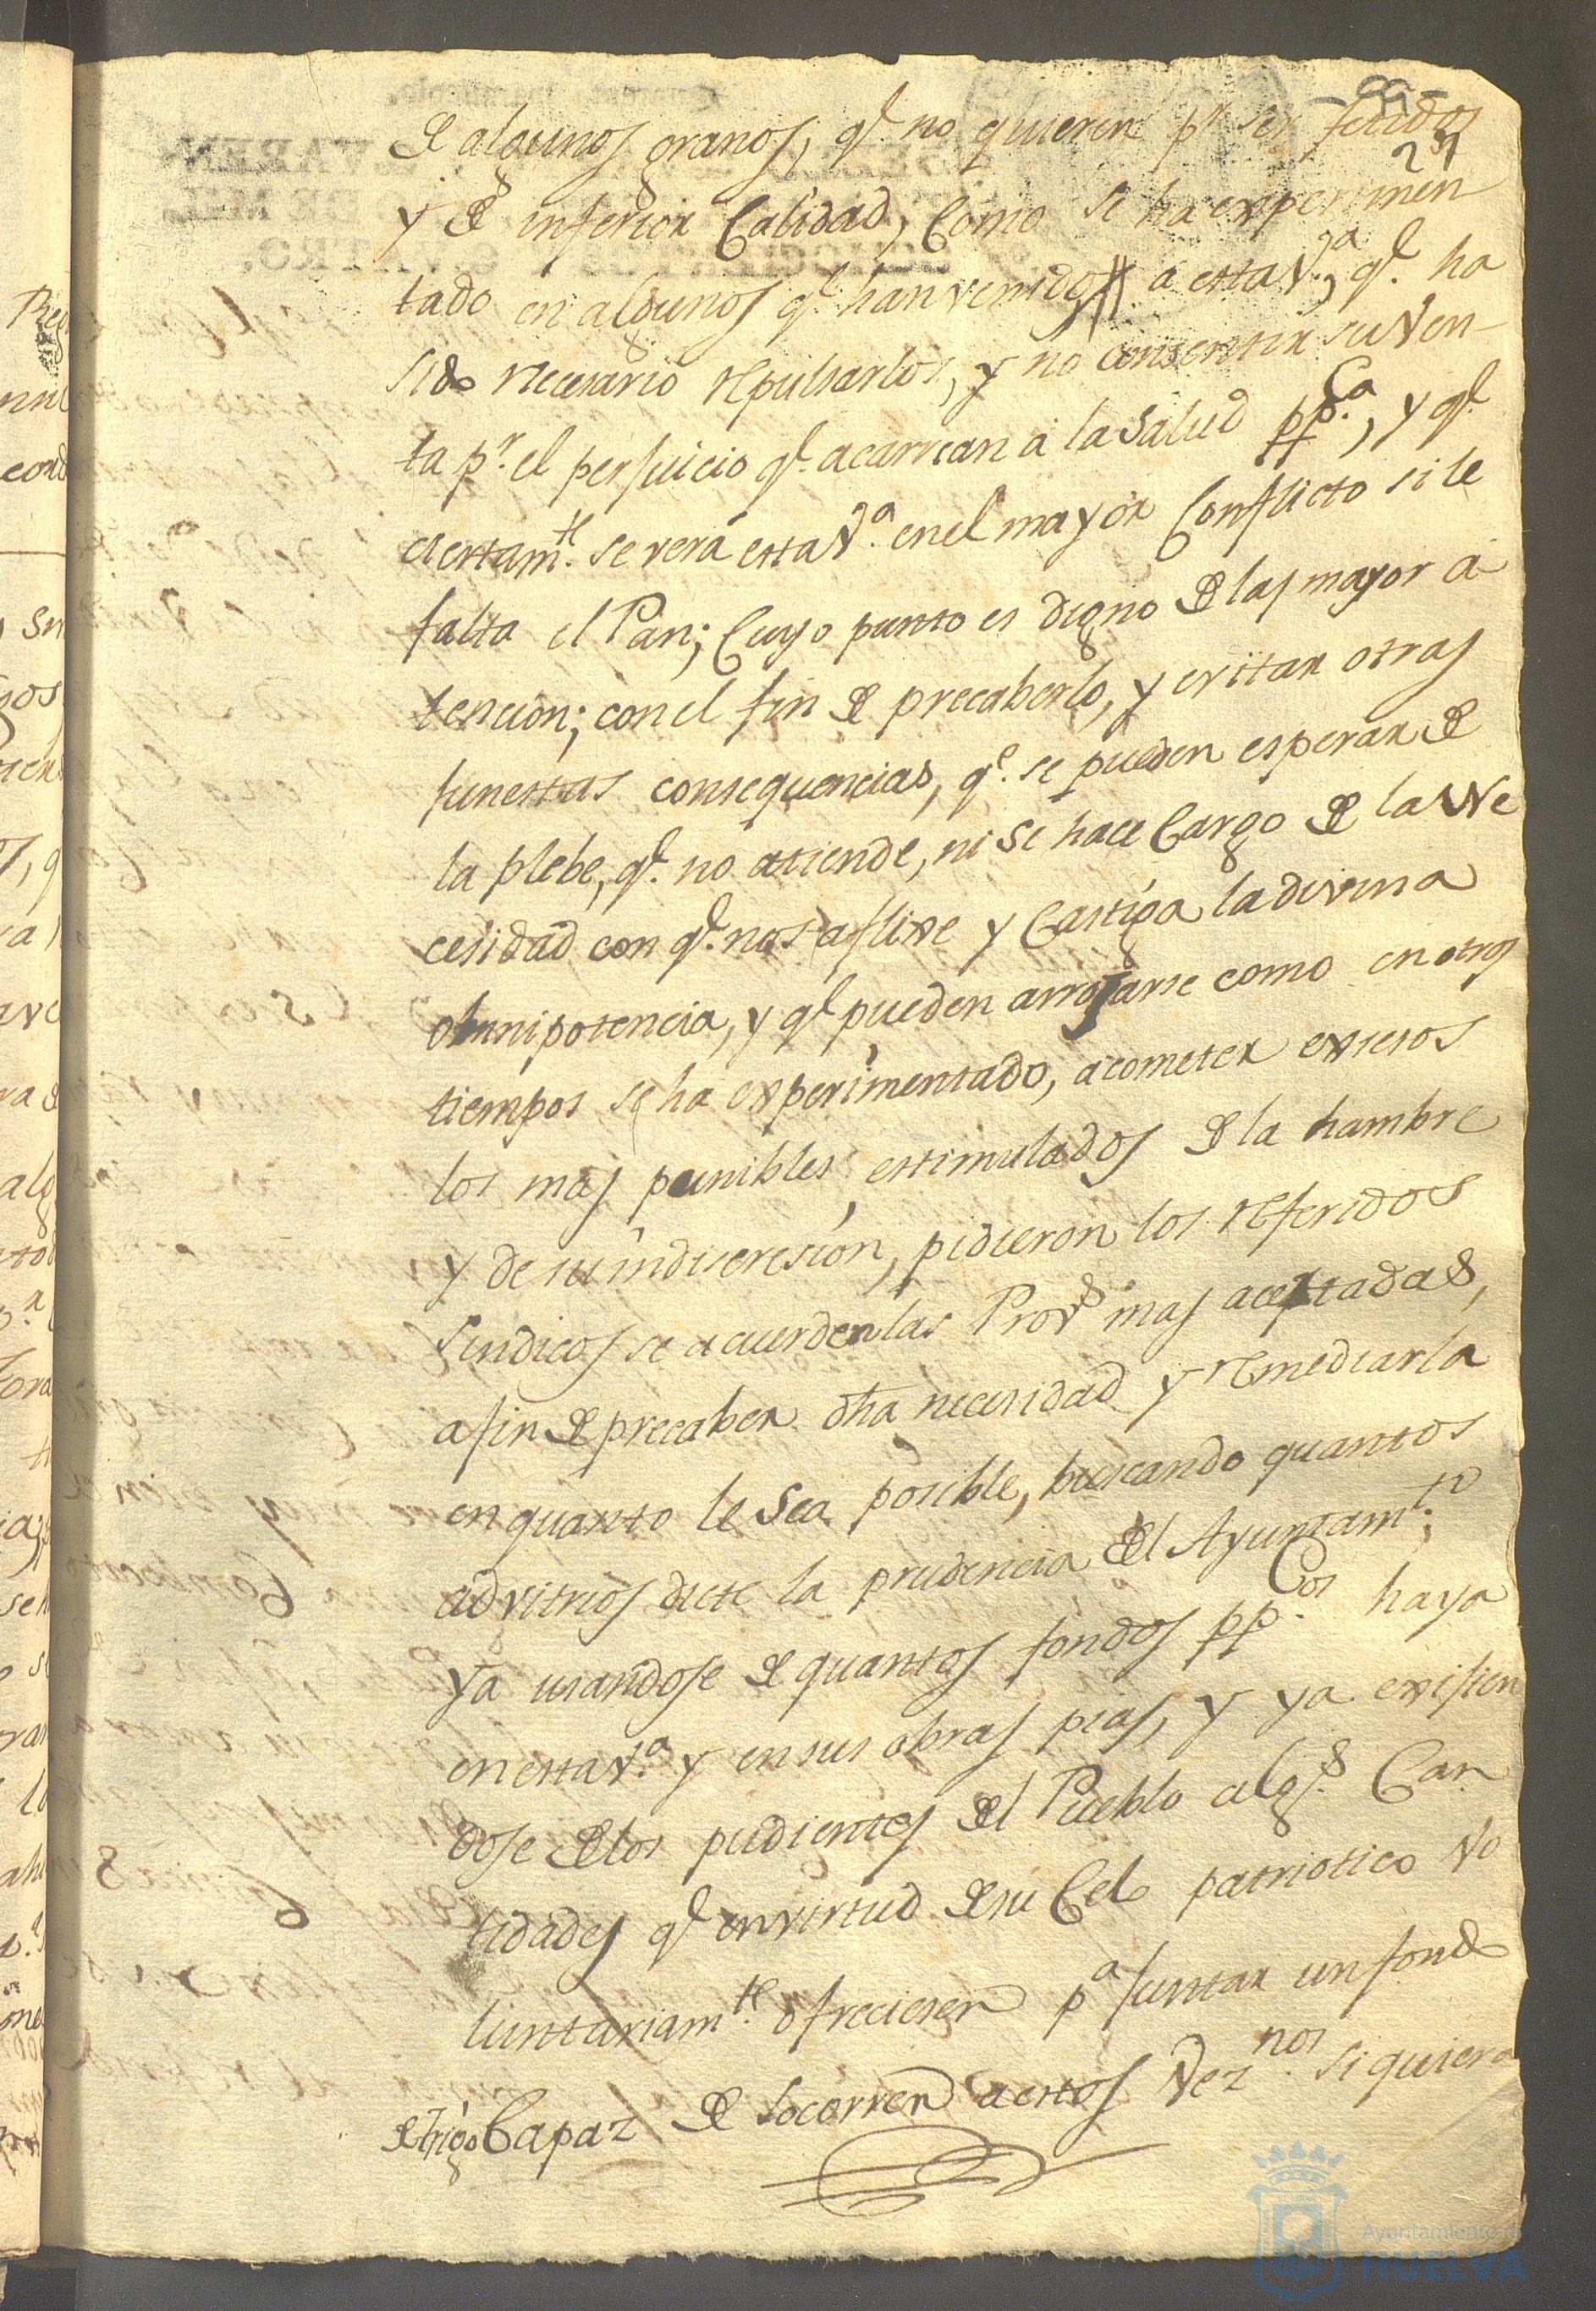 -99-
251
de algunos granos, q.e no quieren p.r ser fetidos
y de inferior Calidad, Como se ha experimen
tado en algunos q.e han venido a esta V.a, q.e ha
sido necesario repulsarlos, y no consentir su Ven-
ta p.r el perjuicio q.e acarrean a la Salud pp.Ca, y q.e
ciertam.te se verá esta V.a en el mayor Conflicto si le
falta el Pan; Cuyo punto es digno de las mayor a
tencion; con el fin de precaberlo, y evitar otras
funestas consequencias, q.e se pueden esperar de
la plebe, q.e no atiende, ni se hace Cargo de la Ne
cesidad con q.e nos aflixe y Castiga la divina
omnipotencia, y q.e pueden arrojarse como en otros
tiempos se ha experimentado, a cometer excesos
los mas punibles, estimulados de la hambre
y de su indiscresion, pidieron los referidos
Sindicos se acuerden las Prov.s mas acertadas,
a fin de precaber dha necesidad y remediarla
en quanto le sea posible, buscando quantos
advitrios dicte la prudencia del Ayuntam.to;
ya usandose de quantos fondos pp.Cos haya
en esta V.a y en sus obras pias, y ya exisien
dose de los pudientes del Pueblo alg.s Can
tidades q.e en virtud de su Celo patriotico Vo
luntariam.te ofrecieren p.a juntar un fondo
de trigo Capaz de socorrer a estos Vez.nos si quiera
Ayuntamiento de
HUELVA